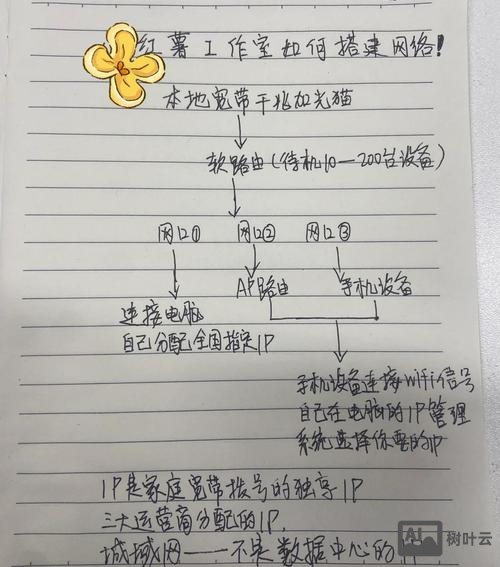 红薯工作室如何搭建网络!
本地宽带千兆加光猫
软路由(待机10—200台设备)
网口① 网口② 网口③
AP路由 手机设备
连接电脑
自己分配全国指定IP
手机设备连接wifi信号
自己在电脑的IP管理
系统选择你要的IP
IP是家庭宽带拨号的独享IP
三大运营商分配的IP,
城域网——不是数据中心的
AI 树叶云